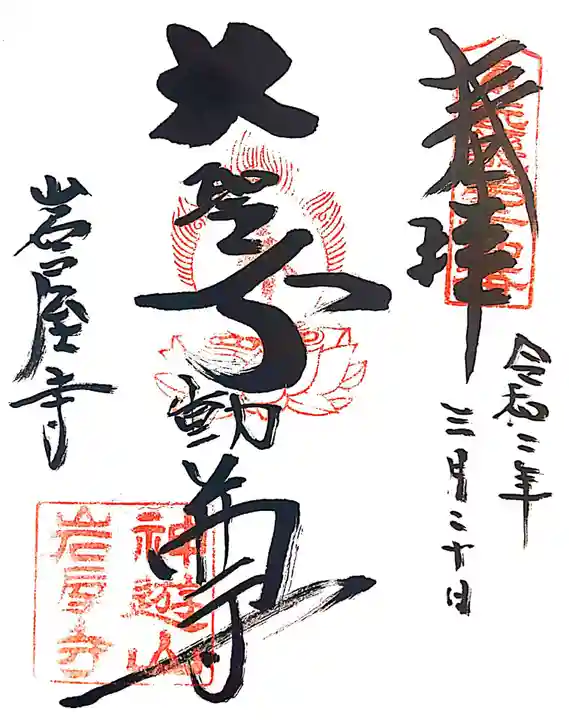 奉拝
令和二年
三月二十日
大聖不動尊
岩屋寺
神遊山
岩屋寺